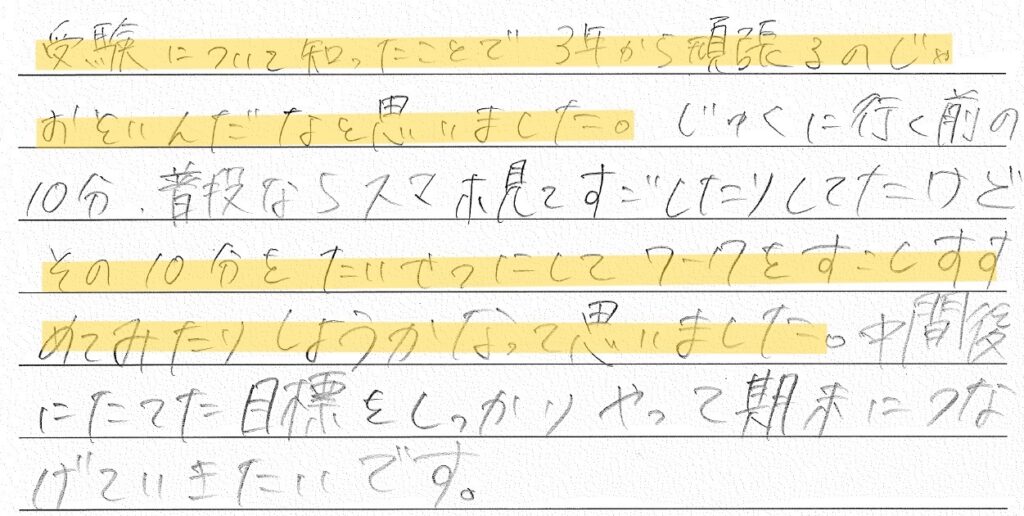 受験について知ったことで3年から頑張るのじゃ
おそいんだなと思いました。じゅくに行く前の
10分、普段ならスマホ見てすごしたりしてたけど
その10分をたいせつにしてワークをすこしすす
めてみたりしようかなって思いました。中間後
にたてた目標をしっかりやって期末につな
げていきたいです。